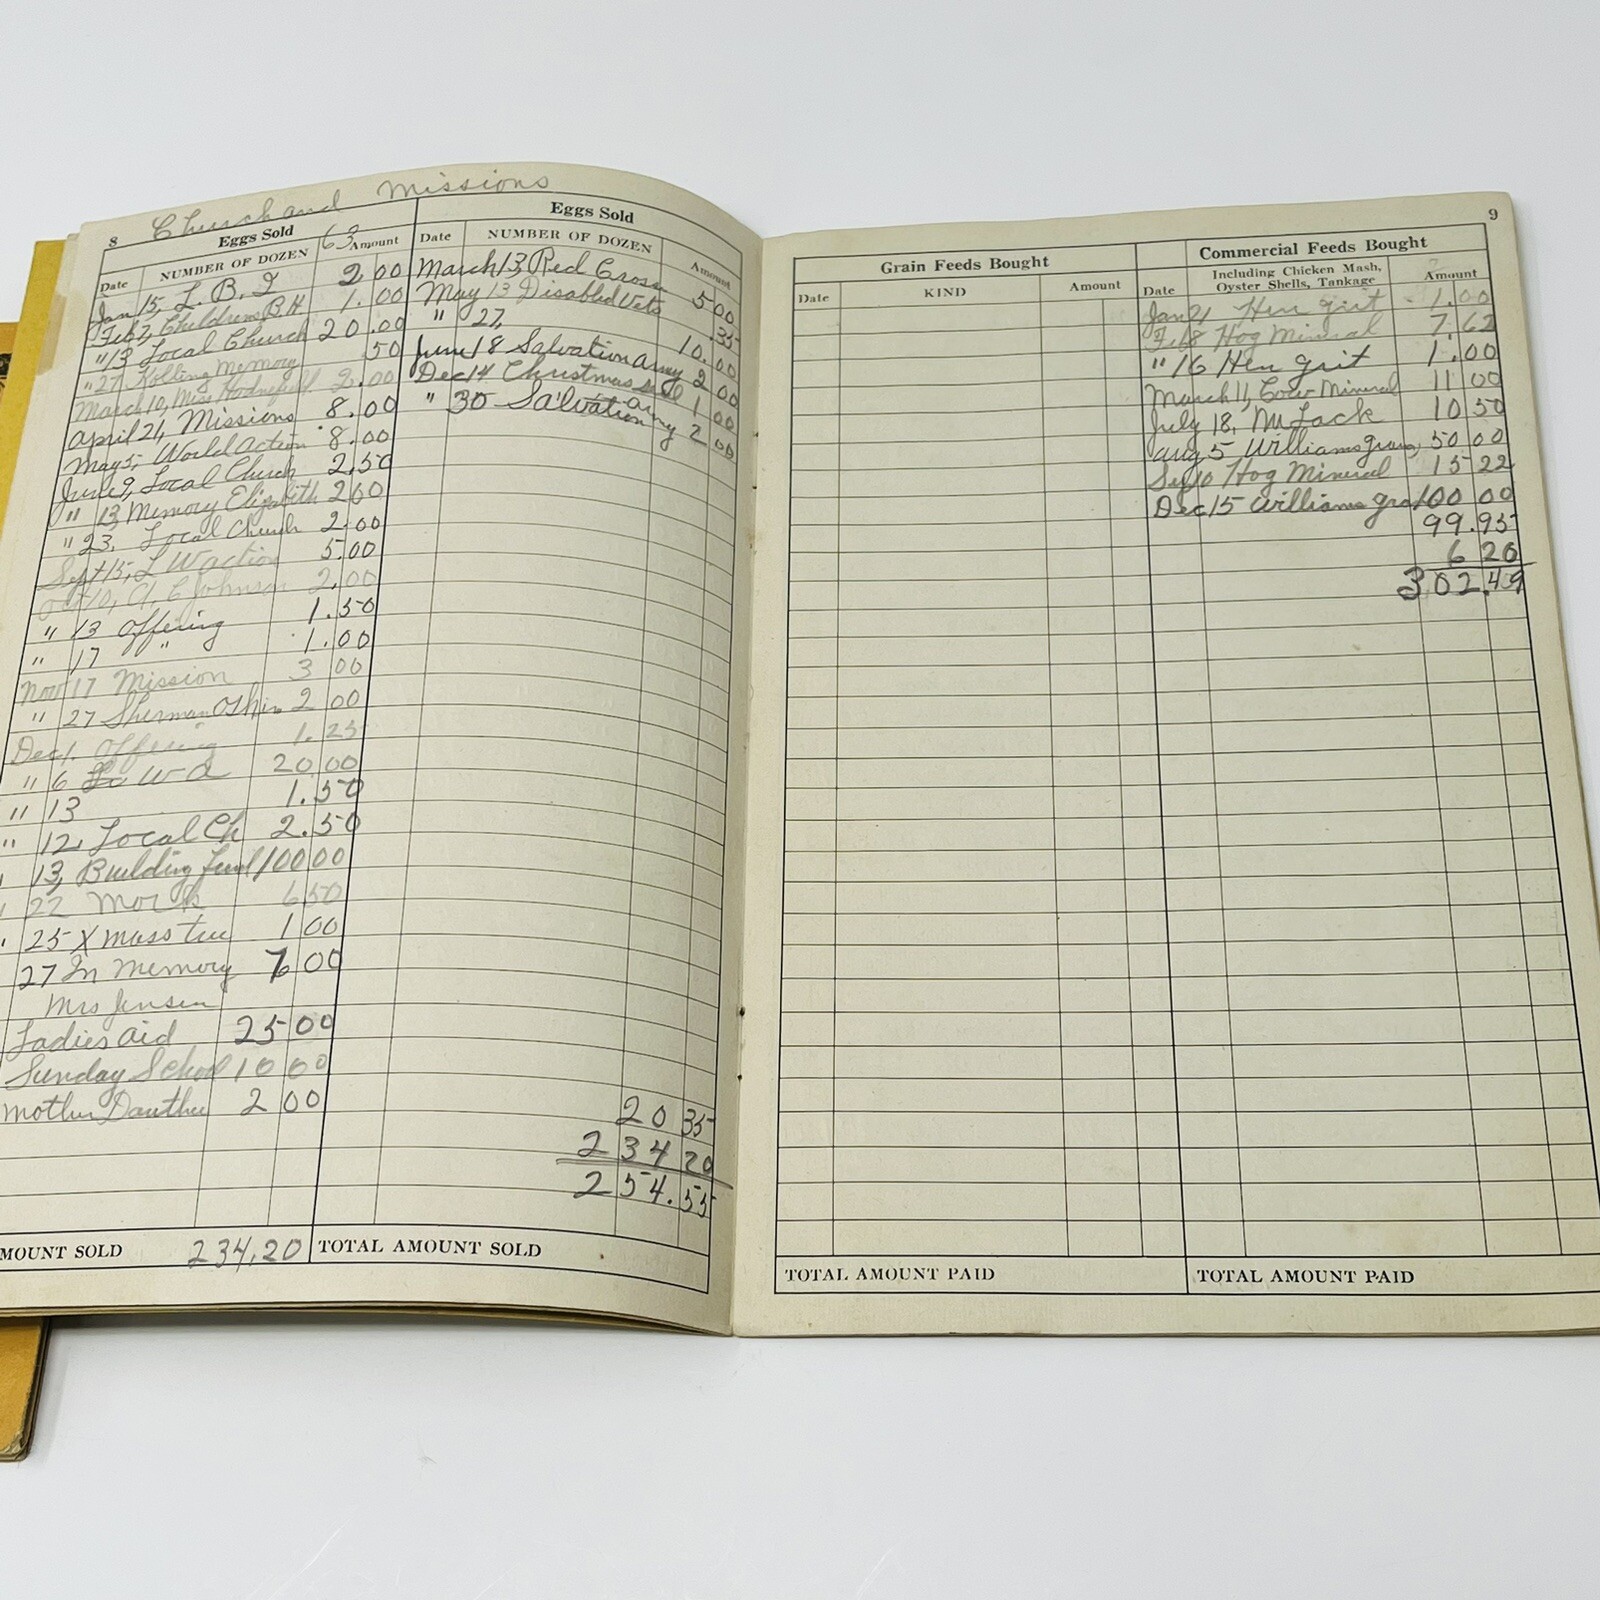 Church and Missions
8 Eggs Sold 63
Date NUMBER OF DOZEN Amount
Jan 15, L. B. I 2.00
Feb 7, Childrens B H 1.00
" 13 Local Church 20.00
" 27 Kolling Memory .50
March 10, Miss 2.00
April 21, Missions 8.00
May 5, World Action 8.00
June 9, Local Church 2.50
" 13, Memory Elizabeth 2 00
" 23, Local Church 2.00
Sept 15, L W action 5.00
Oct 10, A. C Johnson 2,00
" 13 Offering 1.50
" 17 " 1.00
Nov 17 Mission 3 00
" 27 Sherman 2 00
Dec 1. Offering 1.25
" 6 W A 20 00
" 13 1.50
" 12, Local Ch 2.50
" 13, Building Fund 100 00
" 22 6 50
" 25 Xmass tree 1 00
27 In Memory 7 00
Mrs Jensen
Ladies aid 25 00
Sunday School 10 00
Mother 2 00
MOUNT SOLD 234.20
Eggs Sold
Date NUMBER OF DOZEN Amount
March 13, Red Cross 5 00
May 13 Disabled Vets .35
" 27, 10.00
June 18 Salvation army 2 00
Dec 14 Christmas seal 1 00
" 30 Salvation army 2 00
20 35
234 20
254.55
TOTAL AMOUNT SOLD
9
Grain Feeds Bought
Date KIND Amount
TOTAL AMOUNT PAID
Commercial Feeds Bought
Including Chicken Mash,
Oyster Shells, Tankage
Date Amount
Jan 21 Hen grit 1.00
Feb 8 Hog Mineral 7.62
" 16 Hen grit 1.00
March 11, Cow Mineral 11 00
July 18, 10 50
Aug 5 Williams 50 00
Sep 10 Hog Mineral 15 22
Dec 15 Williams 100 00
99.95
6 20
302.49
TOTAL AMOUNT PAID